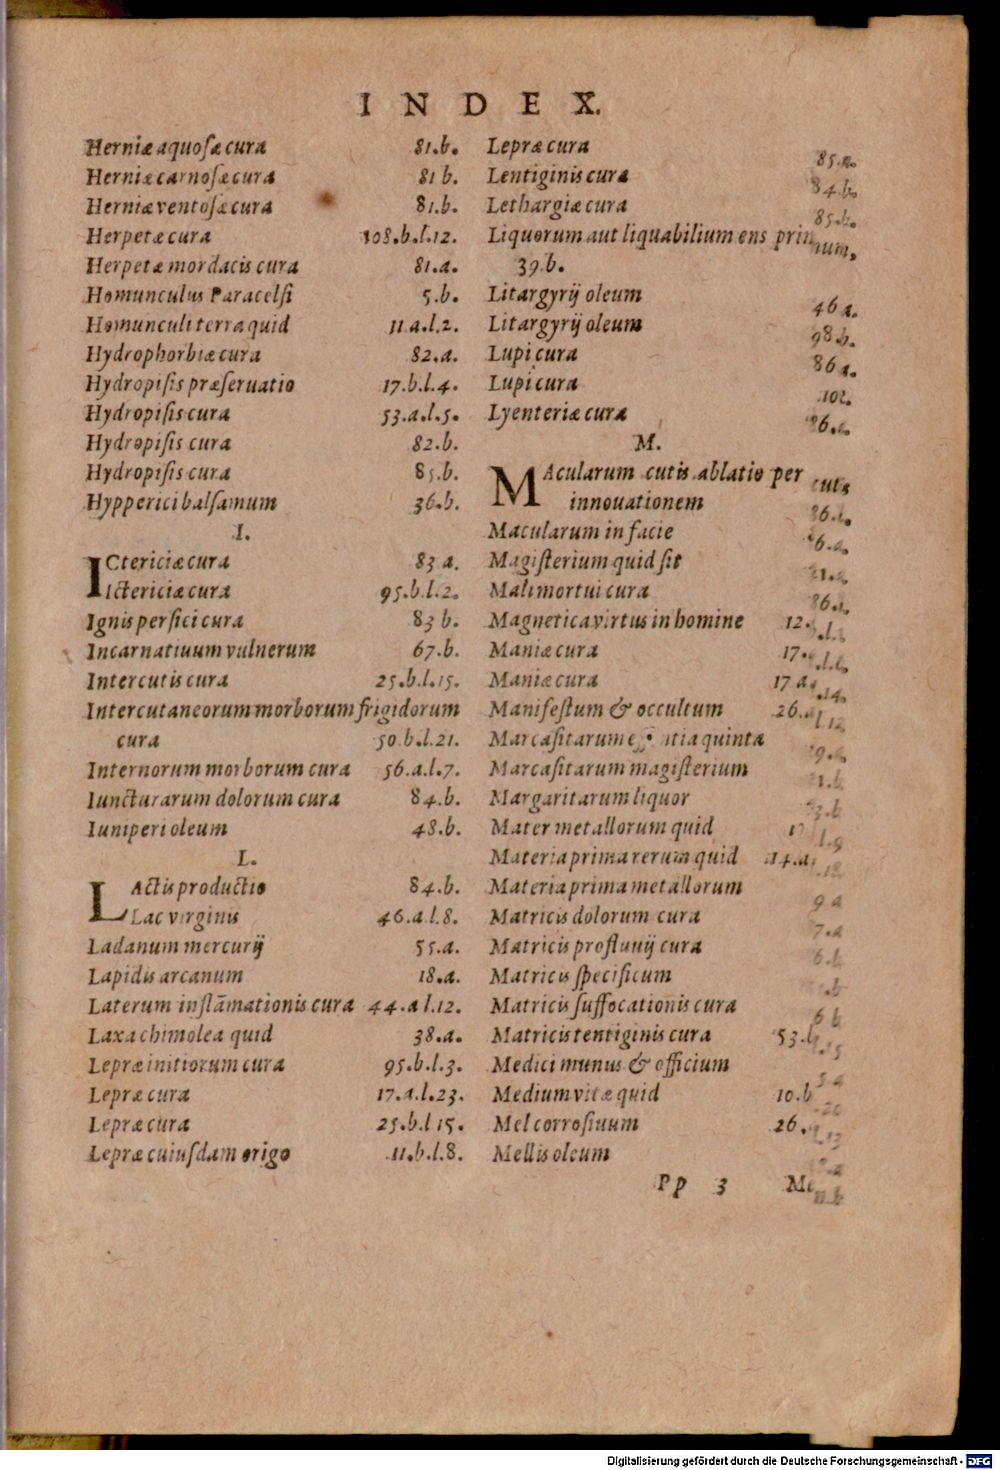 INDEX.
Herniæ aquosæ cura 81.b.
Herniæ carnosæ cura 81 b.
Herniæ ventosæ cura 81.b.
Herpetæ cura 108.b.l.12.
Herpetæ mordacis cura 81.a.
Homunculus Paracelsi 5.b.
Homunculi terra quid 11.a.l.2.
Hydrophorbiæ cura 82.a.
Hydropisis præseruatio 17.b.l.4.
Hydropisis cura 53.a.l.5.
Hydropisis cura 82.b.
Hydropisis cura 85.b.
Hypperici balsamum 36.b.
I.
ICtericiæ cura 83 a.
Ictericiæ cura 95.b.l.2.
Ignis persici cura 83 b.
Incarnatiuum vulnerum 67.b.
Intercutis cura 25.b.l.15.
Intercutaneorum morborum frigidorum
cura 50 b.l.21.
Internorum morborum cura 56.a.l.7.
Iuncturarum dolorum cura 84.b.
Iuniperi oleum 48.b.
L.
LActis productio 84.b.
Lac virginis 46.a l.8.
Ladanum mercurij 55.a.
Lapidis arcanum 18.a.
Laterum inflāmationis cura 44.a l.12.
Laxa chimolea quid 38.a.
Lepræ initiorum cura 95.b.l.3.
Lepræ cura 17.a.l.23.
Lepræ cura 25.b.l 15.
Lepræ cuiusdam origo 11.b.l.8.
Lepræ cura 85.a.
Lentiginis cura 84.b.
Lethargiæ cura 85.b.
Liquorum aut liquabilium ens primum,
39.b.
Litargyrij oleum 46 a.
Litargyrij oleum 98.b.
Lupi cura 86 a.
Lupi cura 102.
Lyenteriæ cura 86.a.
M.
MAcularum cutis ablatio per cutis
innouationem
Macularum in facie
Magisterium quid sit
Mali mortui cura
Magnetica virtus in homine 12.
Maniæ cura 17.
Maniæ cura 17 a
Manifestum & occultum 26.
Marcasitarum quinta
Marcasitarum magisterium
Margaritarum liquor
Mater metallorum quid
Materia prima rerum quid 14.a
Materia prima metallorum
Matricis dolorum cura
Matricis profluuij cura
Matricis specificum
Matricis suffocationis cura
Matricis tentiginis cura 53.b
Medici munus & officium
Medium vitæ quid 10.b
Mel corrosiuum 26.
Mellis oleum
Pp 3
Digitalisierung gefördert durch die Deutsche Forschungsgemeinschaft - DFG